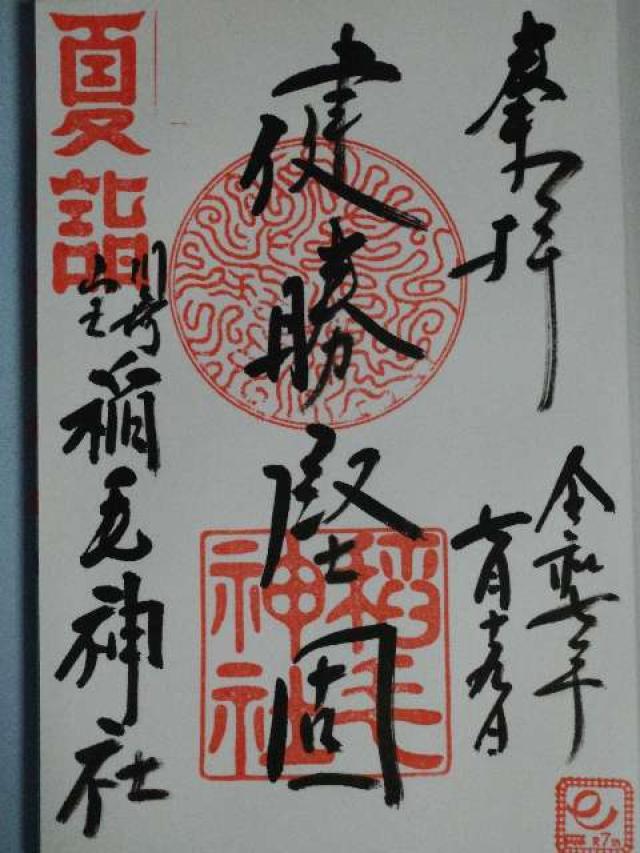 奉拝
令和七年
七月十九日
健勝堅固
稲毛神社
川崎
山王
稲毛神社
夏詣
R7